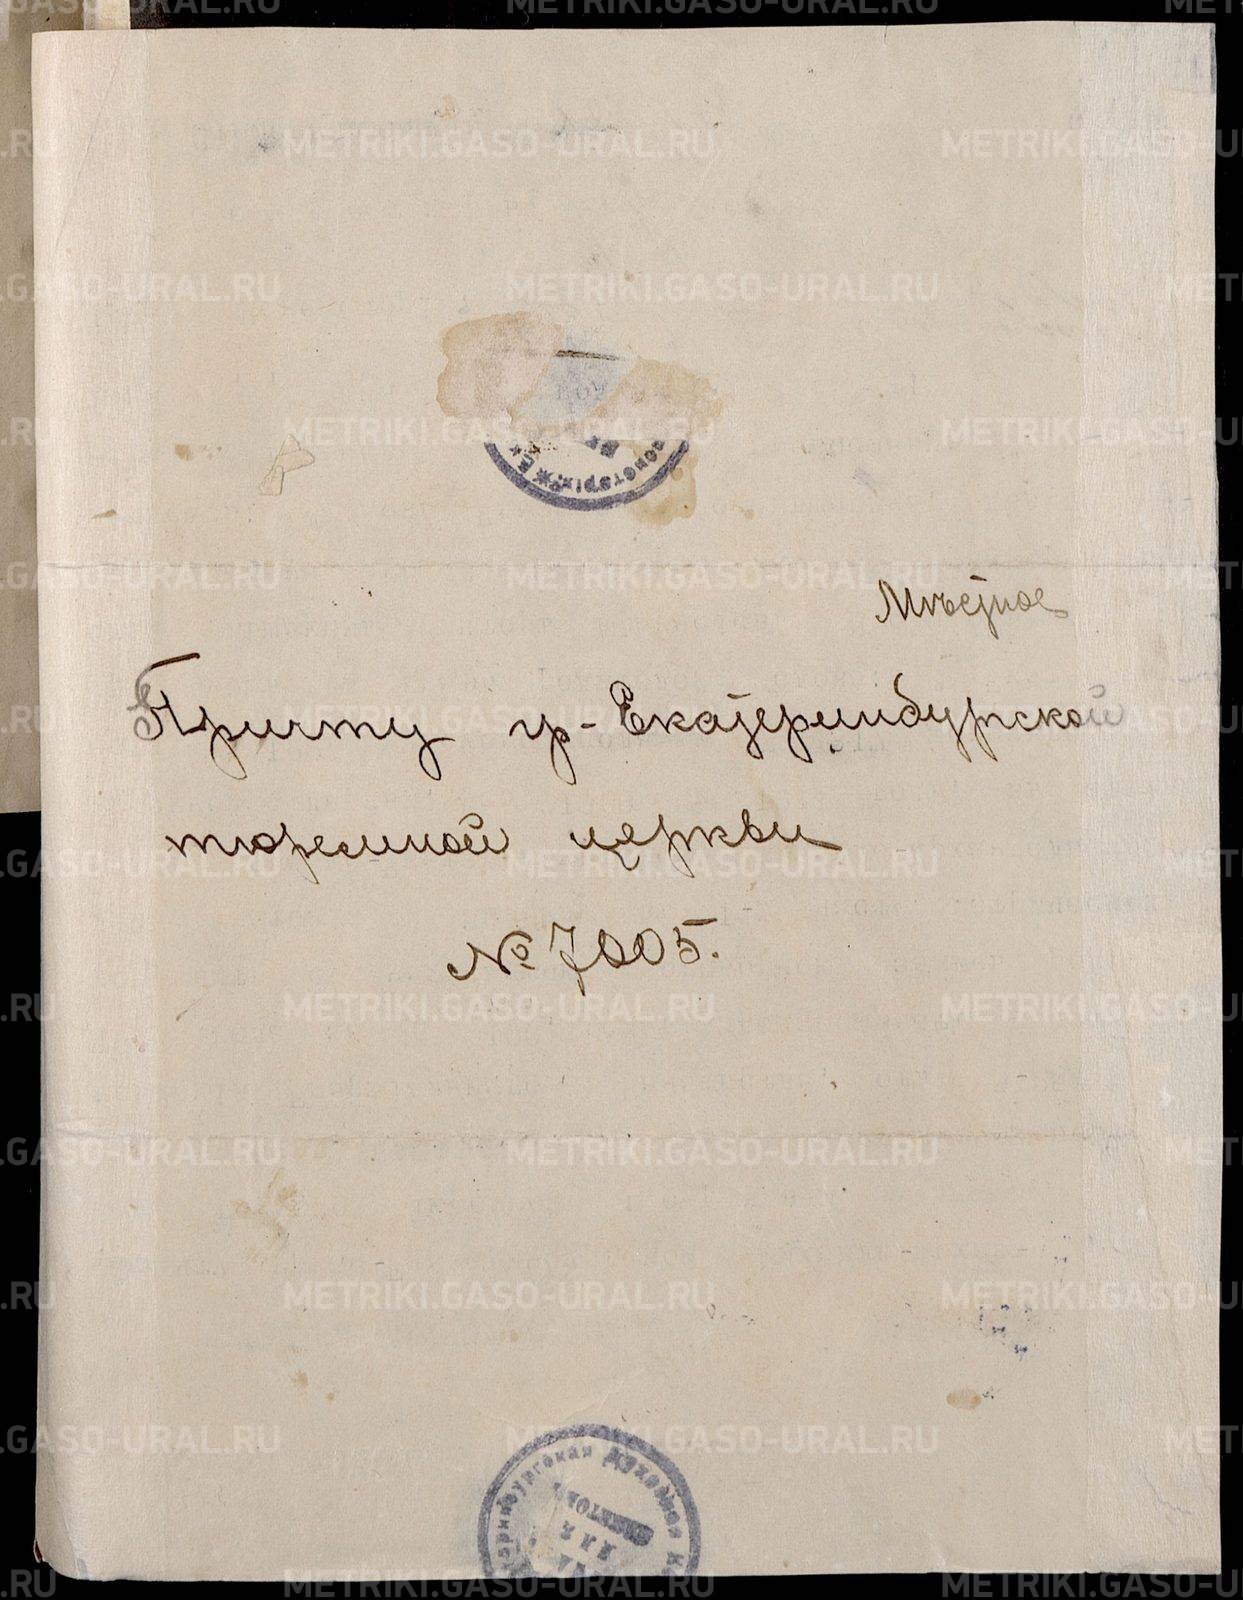 Мѣстное
Причту гр-Екатеринбургской
тюремной церкви
№ 7005.
Екатеринбургская духовная
METRIKI.GASO-URAL.RU